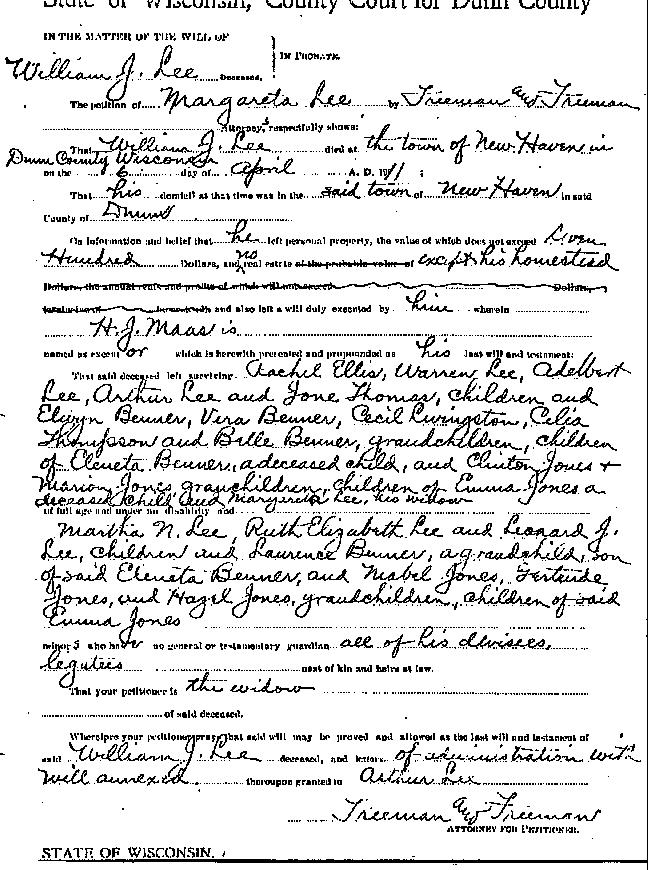 State of Wisconsin, County Court for Dunn County
IN THE MATTER OF THE WILL OF
IN PROBATE.
William J. Lee Deceased,
The petition of Margareta Lee by Freeman and Freeman
Attorneys, respectfully shows:
That William J. Lee died at the town of New Haven in
Dunn County Wisconsin
on the 6 day of April A. D. 1911;
That his domicil at that time was in the said town of New Haven in said
County of Dunn
On information and belief that he left personal property, the value of which does not exceed
Hundred Dollars, and no real estate of the probable value of except his homestead
Dollars, the annual rents and profits of which will not exceed Dollars,
and also left a will duly executed by him wherein
H. J. Maas is
named as execut or which is herewith presented and propounded as his last will and testament:
That said deceased left surviving Rachel Ellis, Warren Lee, Adelbert
Lee, Arthur Lee and Jone Thomas, children and
Benner, Vera Benner, Cecil Livingston, Celia
Thompsson and Belle Benner, grandchildren, children
of Eleneta Benner, a deceased child, and Clinton Jones +
Marion Jones granchildren, children of Emma Jones a
deceased child and Margareta Lee, his widow
of full age and under no disability and
Martha N. Lee, Ruth Elizabeth Lee and Leonard J.
Lee, children and Laurence Benner, a grandchild, son
of said Eleneta Benner, and Mabel Jones, Gertrude
Jones, and Hazel Jones, grandchildren, children of said
Emma Jones
minor s who have no general or testamentary guardian all of his devisees,
legatees next of kin and heirs at law.
That your petitioner is the widow
of said deceased.
Wherefore your petitioner prays that said will may be proved and allowed as the last will and testament of
said William J. Lee deceased, and letters of administration with
will annexed thereupon granted to Arthur Lee
Freeman and Freeman
ATTORNEY FOR PETITIONER.
STATE OF WISCONSIN,